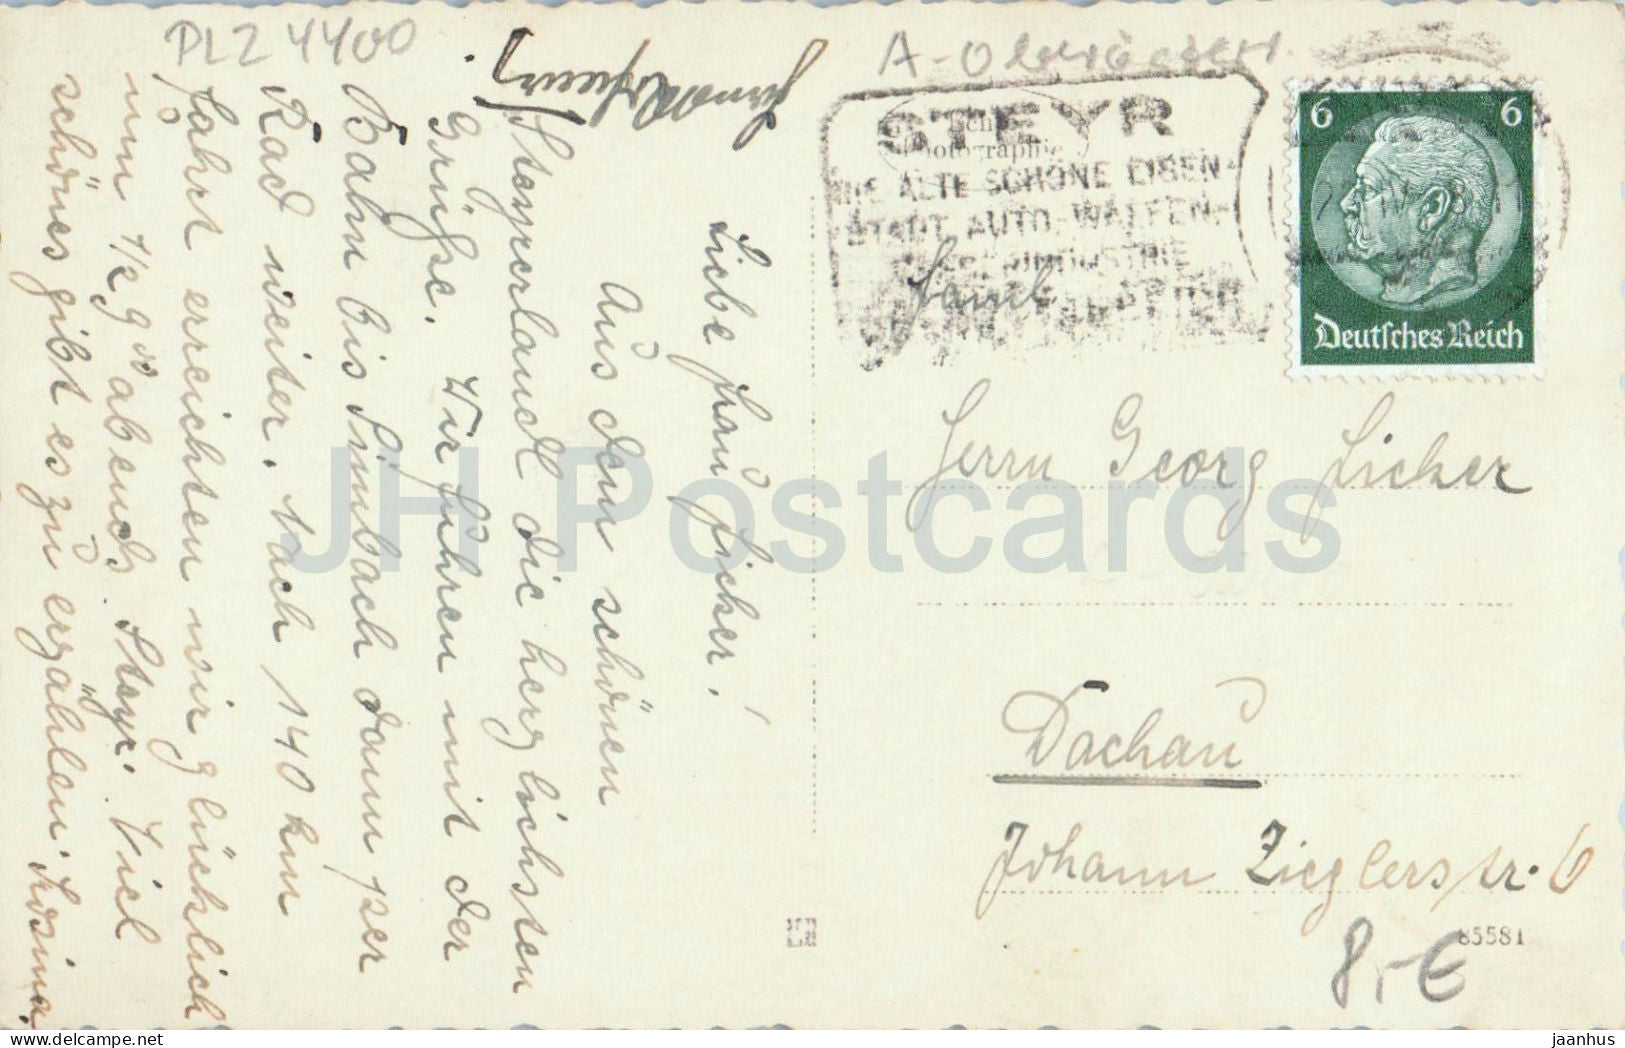 PLZ 4400
Liebe Frau Licker!
Aus dem schönen
Steyrerlandl die herzlichsten
Grüße. Wir fuhren mit der
Bahn bis Simbach dann per
Rad weiter. Nach 140 km
Fahrt erreichten wir glücklich
um 1/2 9 h abends Steyr. Viel
schönes gibt es zu erzählen. Rosina
STEYR
DIE ALTE SCHÖNE EISEN-
STADT, AUTO-WAFFEN-
INDUSTRIE
Echte
Photographie
6 6
Deutsches Reich
Familie
Herrn Georg Licker
Dachau
Johann Zieglerstr. 6
85581
8,-€
JH Postcards
delcampe.net
jaanhus